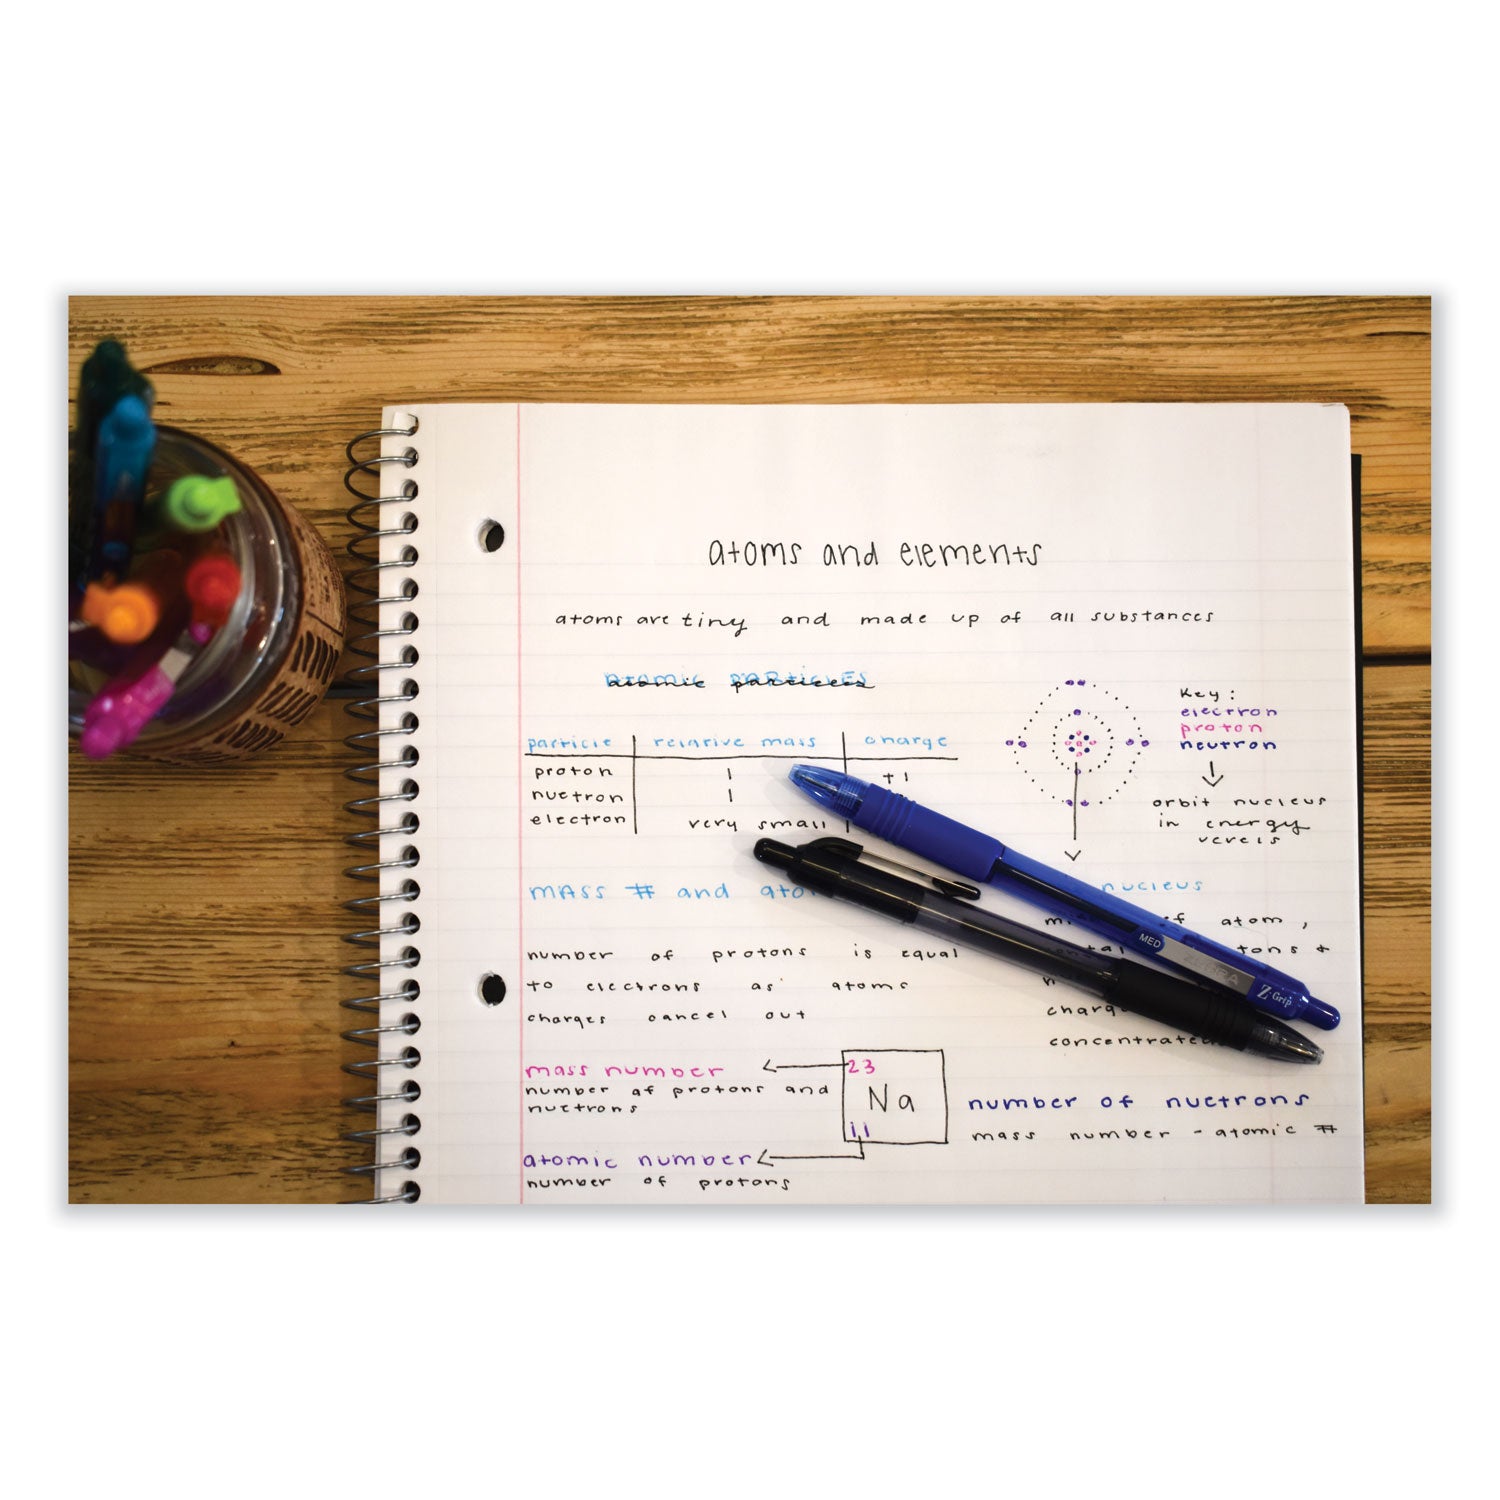 atoms and elements
atoms are tiny and made up of all substances
atomic particles
particle relative mass charge
proton 1 +1
nuetron 1
electron very small
Key:
electron
proton
neutron
orbit nucleus
in energy
MASS # and
nucleus
atom,
number of protons is equal
to electrons as atoms
charges cancel out
mass number
number of protons and
nuetrons
23
Na
11
atomic number
number of protons
number of nuetrons
mass number - atomic #
MED ZEBRA Z-Grip